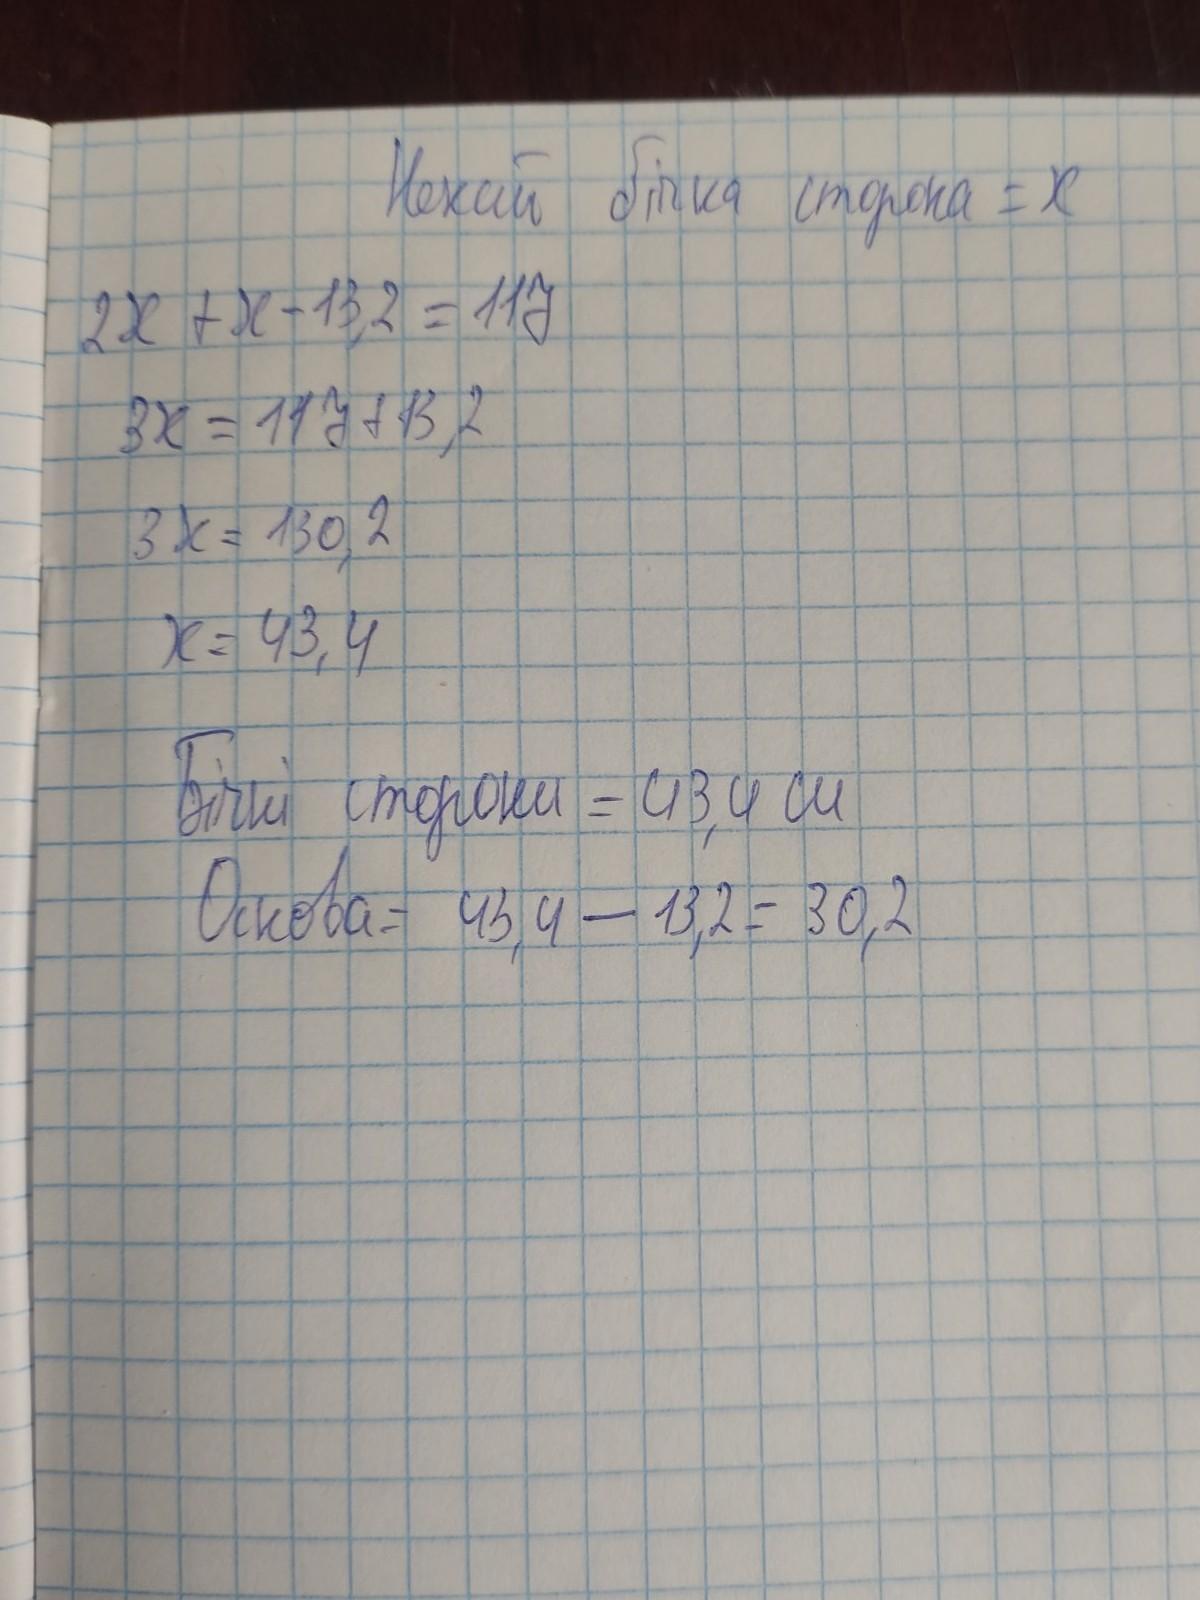 Нехай бічна сторона = x
2x + x - 13,2 = 117
3x = 117 + 13,2
3x = 130,2
x = 43,4
Бічні сторони = 43,4 см
Основа = 43,4 — 13,2 = 30,2